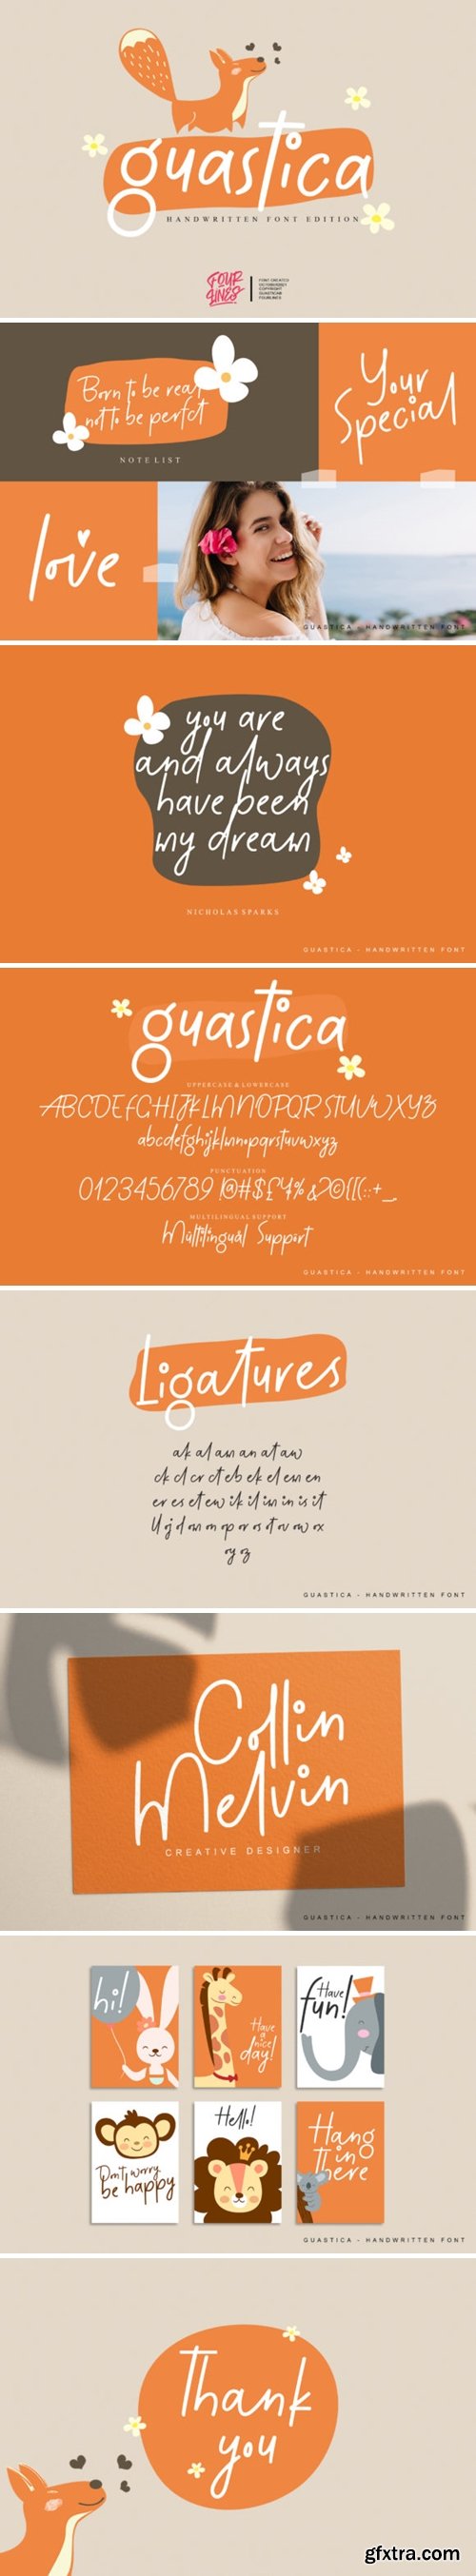 guastica
HANDWRITTEN FONT EDITION
FOUR
LINES
Born to be real
not to be perfct
NOTE LIST
Your
Special
love
GUASTICA - HANDWRITTEN FONT
you are
and always
have been
my dream
NICHOLAS SPARKS
GUASTICA - HANDWRITTEN FONT
guastica
UPPERCASE & LOWERCASE
ABCDEFGHIJKLMNOPQRSTUVWXYZ
abcdefghijklmnopqrstuvwxyz
PUNCTUATION
0123456789
MULTILINGUAL SUPPORT
Multilingual Support
GUASTICA - HANDWRITTEN FONT
Ligatures
ak al am an at aw
ck cl cr ct eb ek el em en
er es et ew ik il im in is it
oy oz
GUASTICA - HANDWRITTEN FONT
Collin
Melvin
CREATIVE DESIGNER
GUASTICA - HANDWRITTEN FONT
hi!
Have
a
nice
day!
Have
fun!
Don't worry
be happy
Hello!
Hang
in
There
GUASTICA - HANDWRITTEN FONT
Thank
you
gfxtra.com